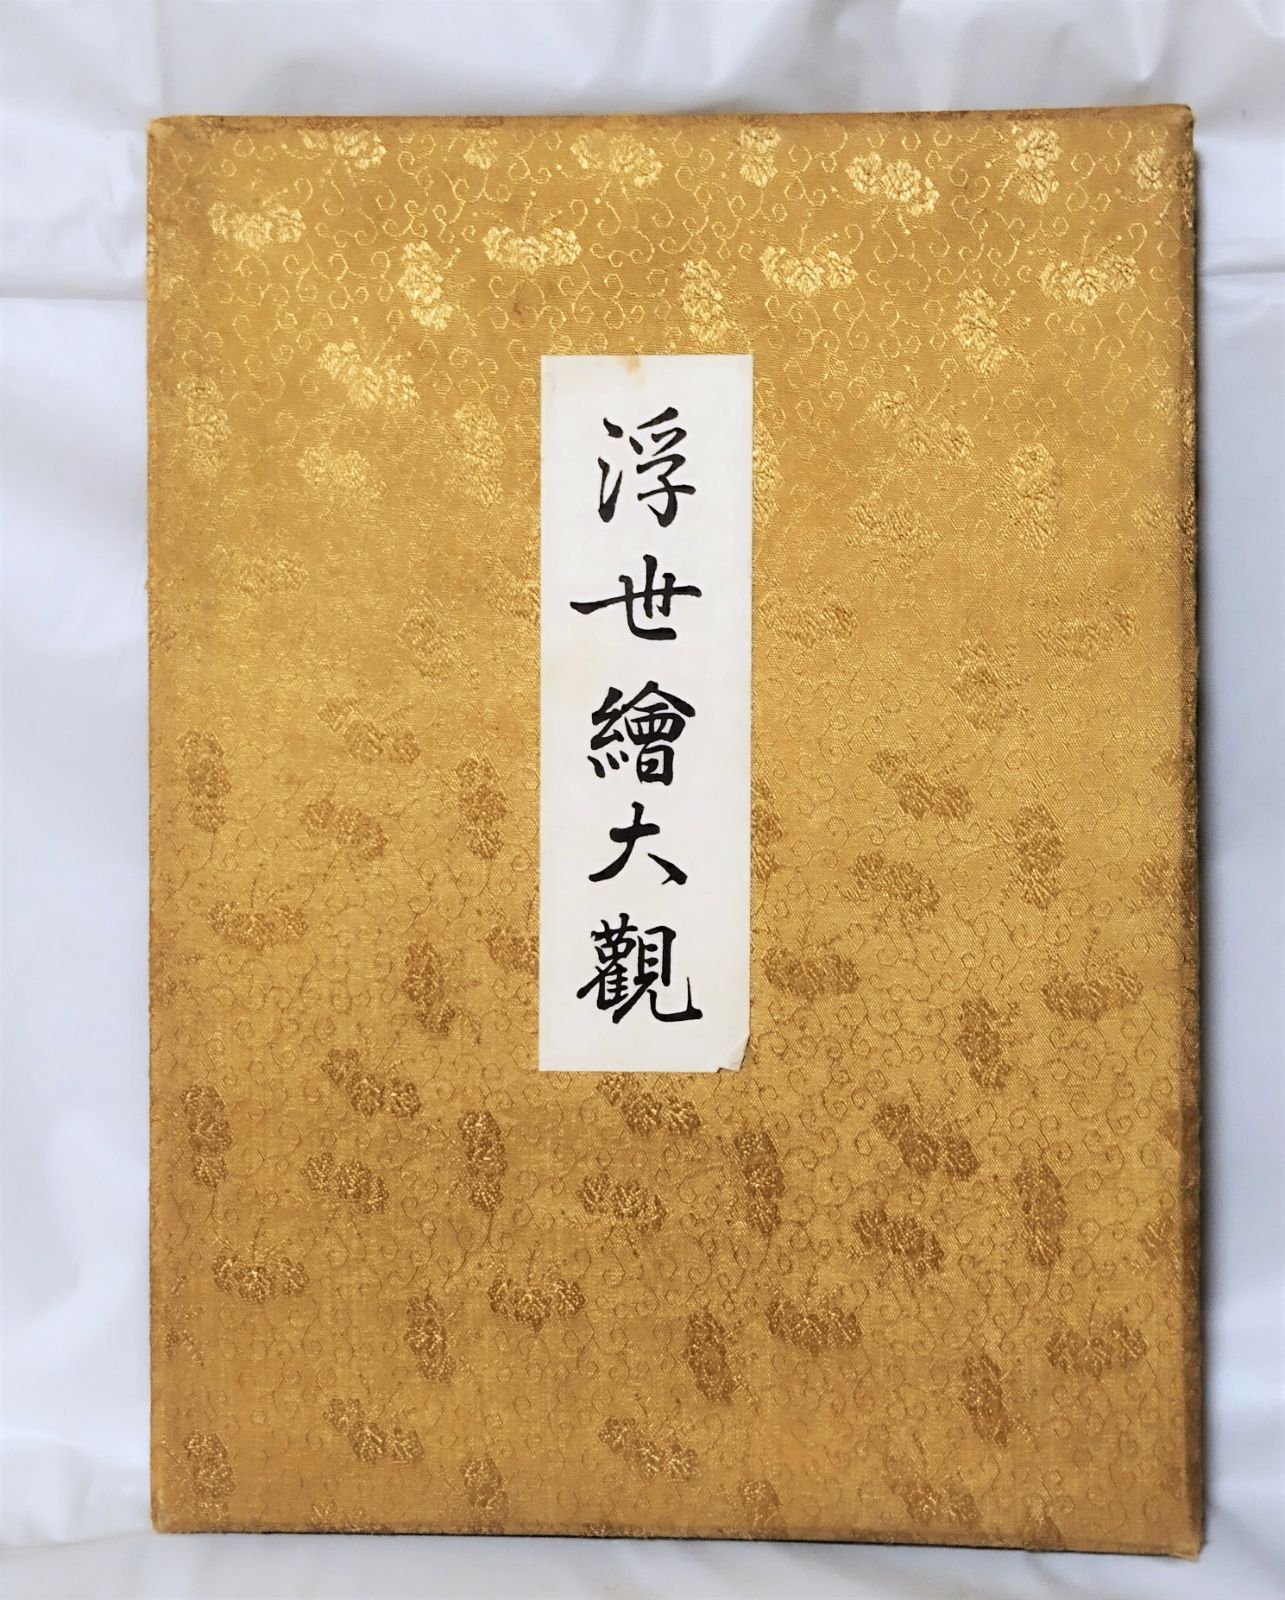 浮世繪大觀